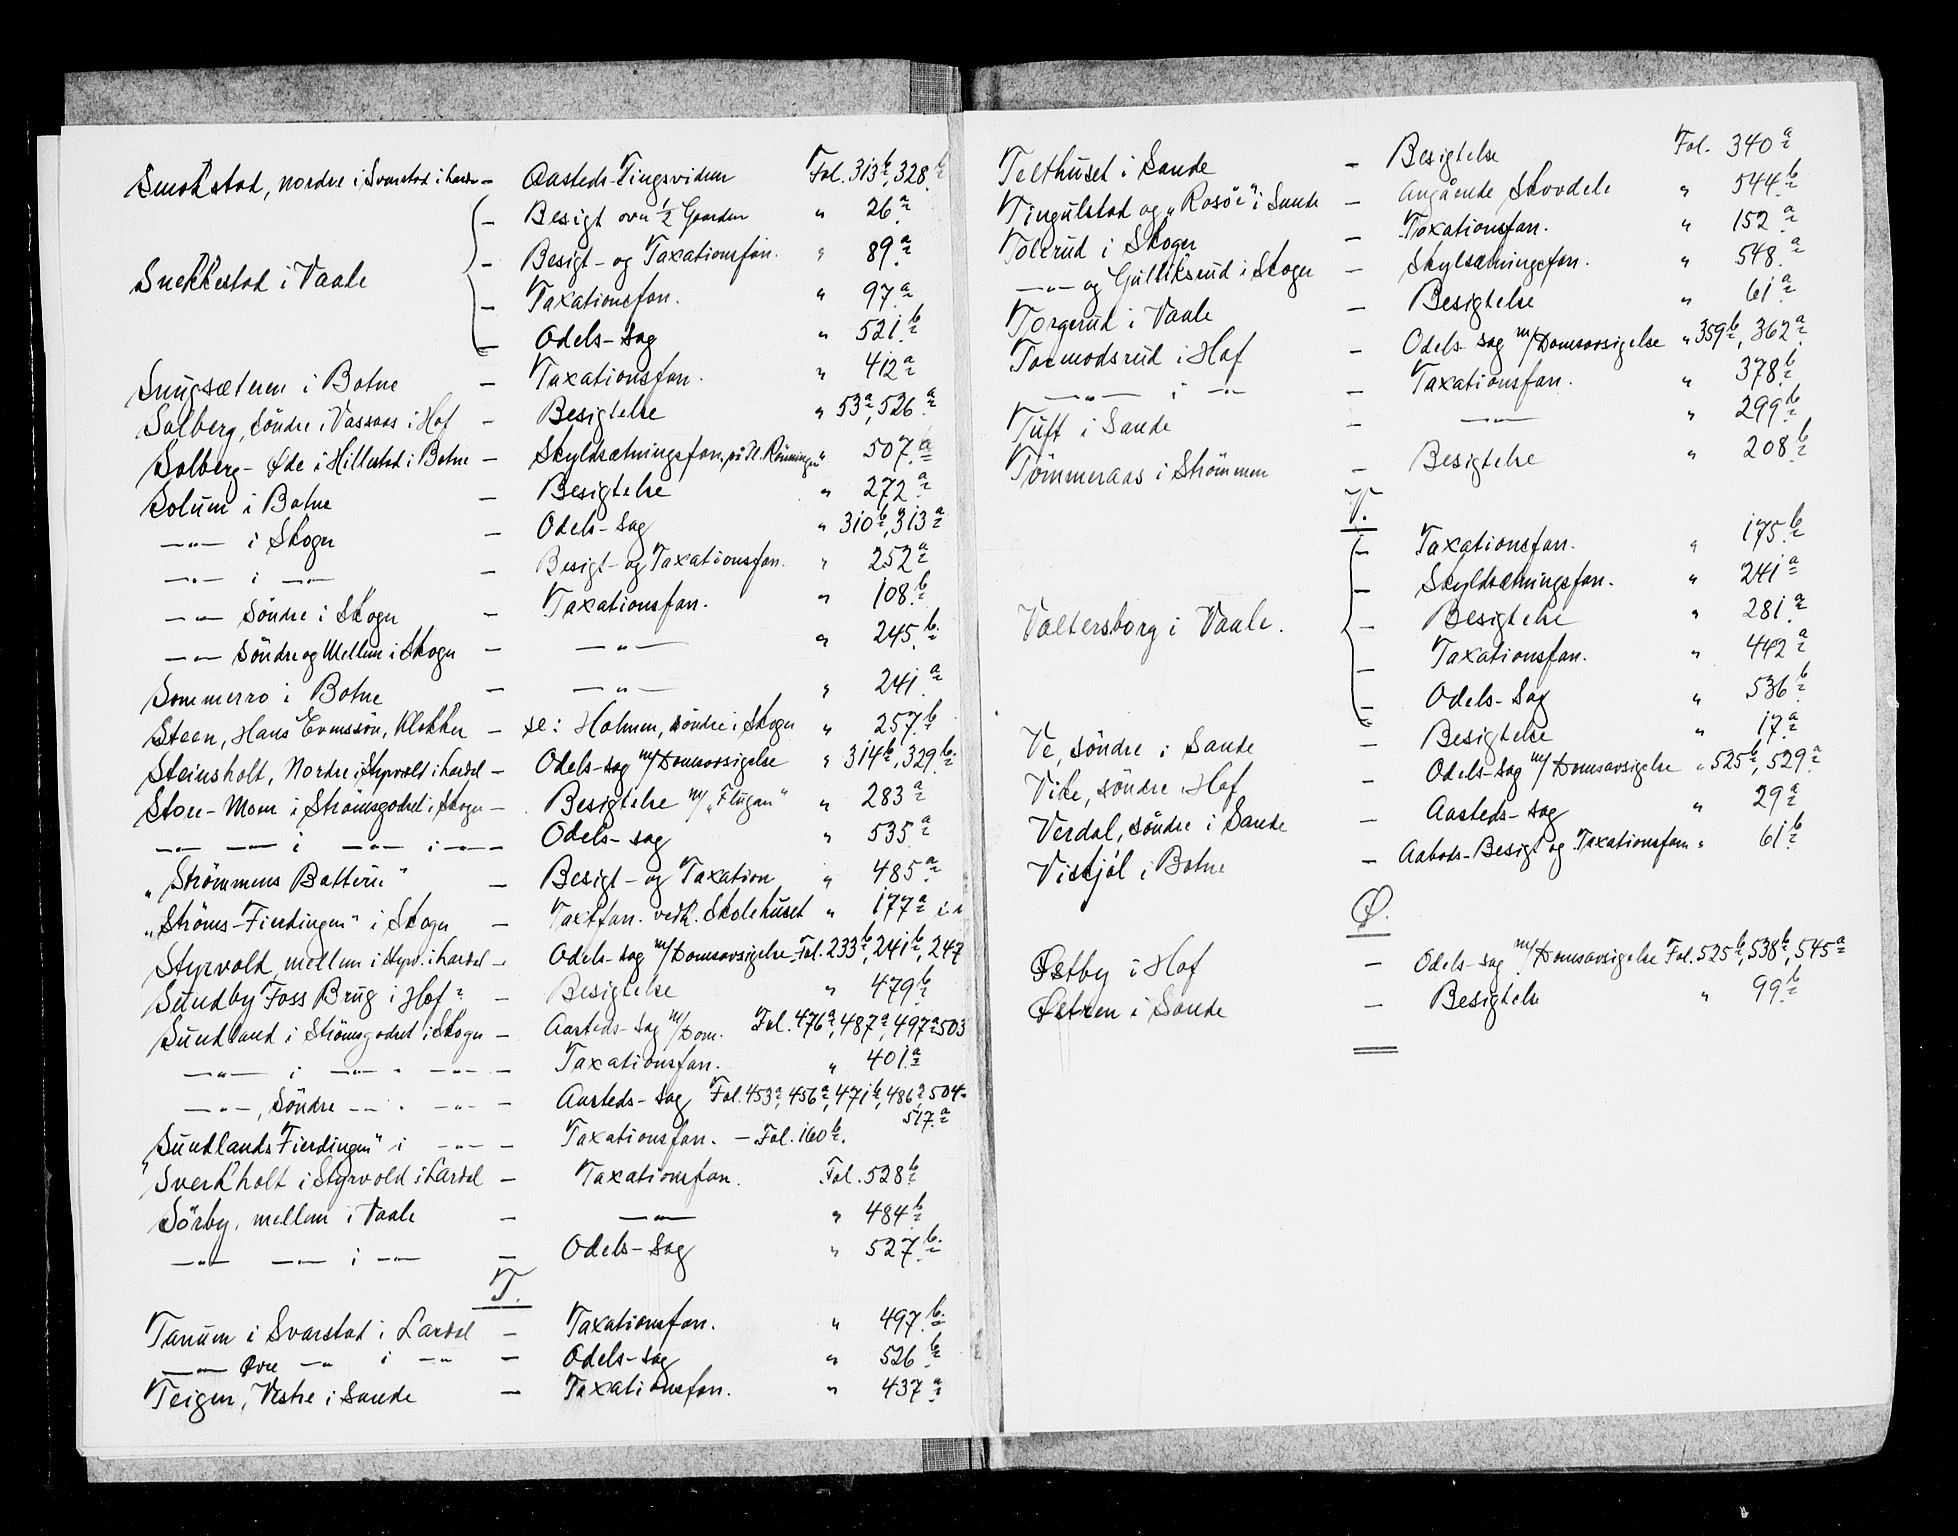 Smokstad, nordre i Svarstad i Lardal – Aasteds-Tingsvidne Fol. 313b, 328b
– Besigt over 1/2 Gaarden " 26a
– Besigt- og Taxationsforr. " 89a
Snekkestad i Vaale – Taxationsforr. " 97a
– Odels-sag " 521b
Snugsæteren i Botne – Taxationsforr. " 412a
Solberg, söndre i Vassaas i Hof – Besigtelse " 53a, 526a
Solberg-Øde i Hillestad i Botne – Skyldsætningsforr. på Pl. Rönningen " 507a
Solum i Botne – Besigtelse " 272a
—"— i Skoger – Odels-sag " 310b, 313a
—"— i —"— – Besigt- og Taxationsforr. " 252a
—"— Söndre i Skoger – Taxationsforr. " 108b
—"— Söndre og Mellem i Skoger – —"— " 245b
Sommerro i Botne – —"— " 241a
Steen, Hans Evensön, Klokker – se: Holmen, söndre i Skoger " 257b
Steinsholt, Nordre i Styrvolt i Lardal – Odels-sag m/Domsavsigelse " 314b, 329b
Store-Moen i Strömsgodset i Skoger – Besigtelse m/"Flugan" " 283a
—"— —"— i —"— i —"— – Odels-sag " 535a
"Strömmens Batteri" – Besigt- og Taxation " 485a
"Ströms-Fierdingen" i Skoger – Taxtforr. vedk. Skolehuset " 177a
Styrvold mellem i Styrv. i Lardal – Odels-sag m/Domsavsigelse Fol. 233b, 241b, 247
Sundby Foss Brug i Hof? – Besigtelse " 479b
Sundland i Strömsgodset i Skoger – Aasteds-sag m/Dom. Fol. 476a, 487a, 497a 503
—"— i —"— " —"— – Taxationsforr. " 401a
—"—, Söndre —"— " —"— – Aasteds-sag Fol. 453a, 456a, 471b, 486a, 504
517a
"Sundlands Fierdingen" i —"— – Taxationsforr. – Fol. 160b.
Sverkholt i Styrvold i Lardal – Taxationsforr. Fol. 528b
Sörby, mellem i Vaale – —"— " 484b
—"— —"— i —"— – Odels-sag " 527b
T.
Tanum i Svarstad i Lardal – Taxationsforr. " 497b
—"— Øvre —"— i —"— – Odels-sag " 526b
Teigen, Vestre i Sande – Taxationsforr. " 437a
Telthuset i Sande – Besigtelse Fol. 340a
Tingulstad og "Rosör" i Sande – Angående Skovdele " 544b
Tolerud i Skoger – Taxationsforr. " 152a
—"— og Gulliksrud i Skoger – Skyldsætningsforr. " 548a
Torgerud i Vaale – Besigtelse " 61a
Tormodsrud i Hof – Odels-sag m/Domsavsigelse " 359b, 362a
—"— i —"— – Taxationsforr. " 378b
Tuft i Sande – —"— " 299b
Tömmeraas i Strömmen – Besigtelse " 208b
V.
– Taxationsforr. " 175b
– Skyldsætningsforr. " 241a
Valtersborg i Vaale. – Besigtelse " 281a
– Taxationsforr. " 442a
– Odels-Sag " 536b
Ve, söndre i Sande – Besigtelse " 17a
Vike, söndre i Hof – Odels-sag m/Domsavsigelse " 525b, 529a
Verdal, söndre i Sande – Aasteds-sag " 29a
Viskjöl i Botne – Aabods-Besigt og Taxationsforr " 61b
Ø.
Østby i Hof – Odels-sag m/Domsavsigelse Fol. 525b, 538b, 545a
Østren i Sande – Besigtelse " 99b